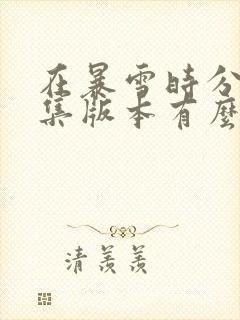 在暴雪時分
集版本有麼
清羨羨